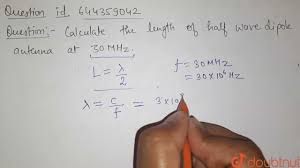 Question id. 644359042
Question:- Calculate the length of half wave dipole
antenna at 30 MHz.
L = λ/2
f = 30 MHz
= 30×10⁶ Hz
λ = c/f = 3×10
doubtnut